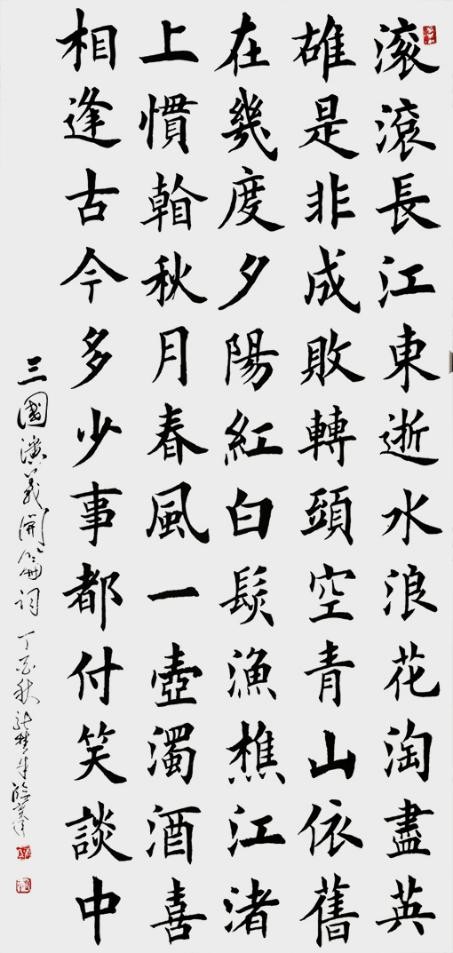 滚滾長江東逝水浪花淘盡英
雄是非成敗轉頭空青山依舊
在幾度夕陽紅白髮漁樵江渚
上慣看秋月春風一壺濁酒喜
相逢古今多少事都付笑談中
三國演義開篇詞 丁酉秋